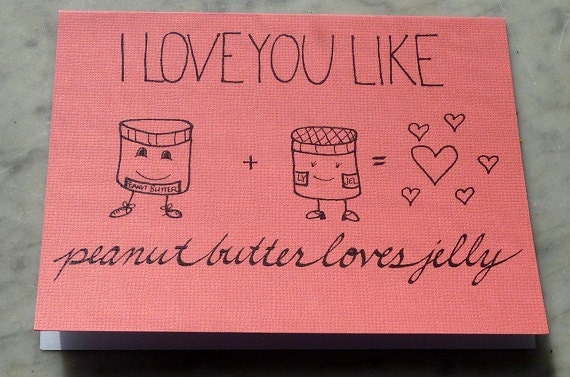 I LOVE YOU LIKE
PEANUT BUTTER
LY JEL
+ =
peanut butter loves jelly